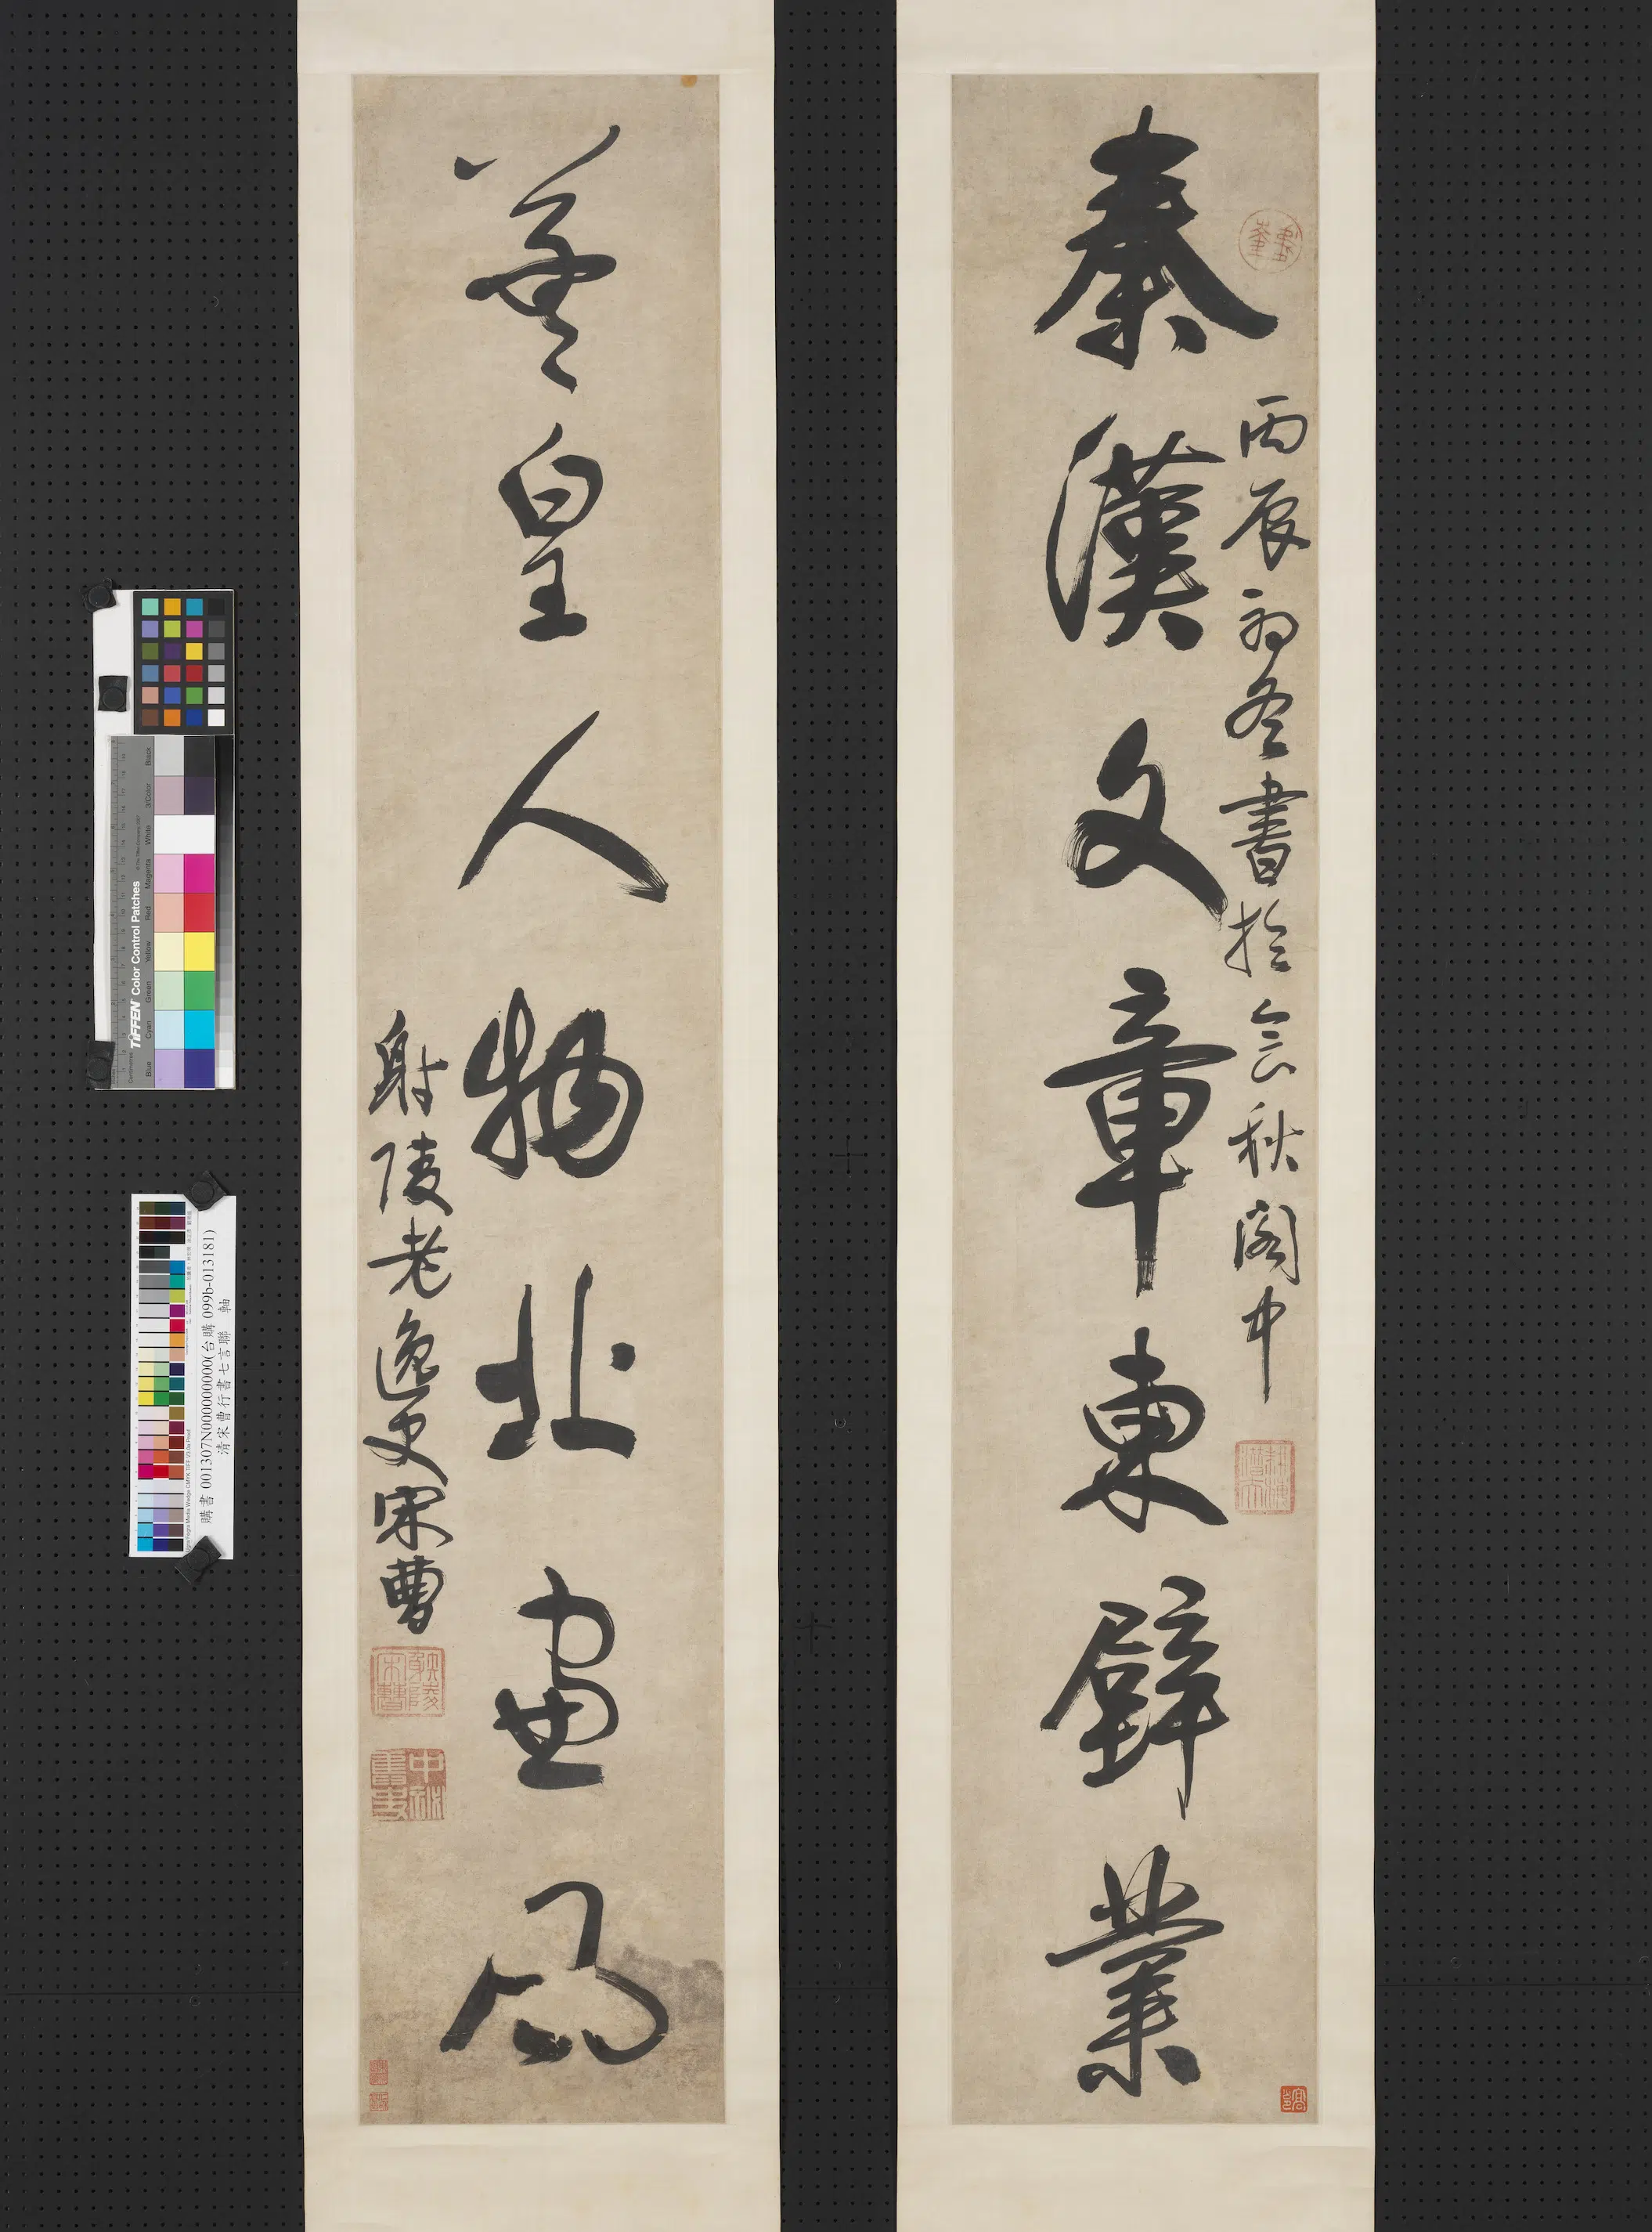 秦漢文章東壁業
丙辰初冬書於會秋閣中
羲皇人物北窗風
射陵老逸史宋曹
射陵宋曹
TIFFEN Color Control Patches
Blue Cyan Green Yellow Red Magenta White 3/Color Black
購書 001307N000000000(台購 099b-013181)
清宋曹行書七言聯 軸